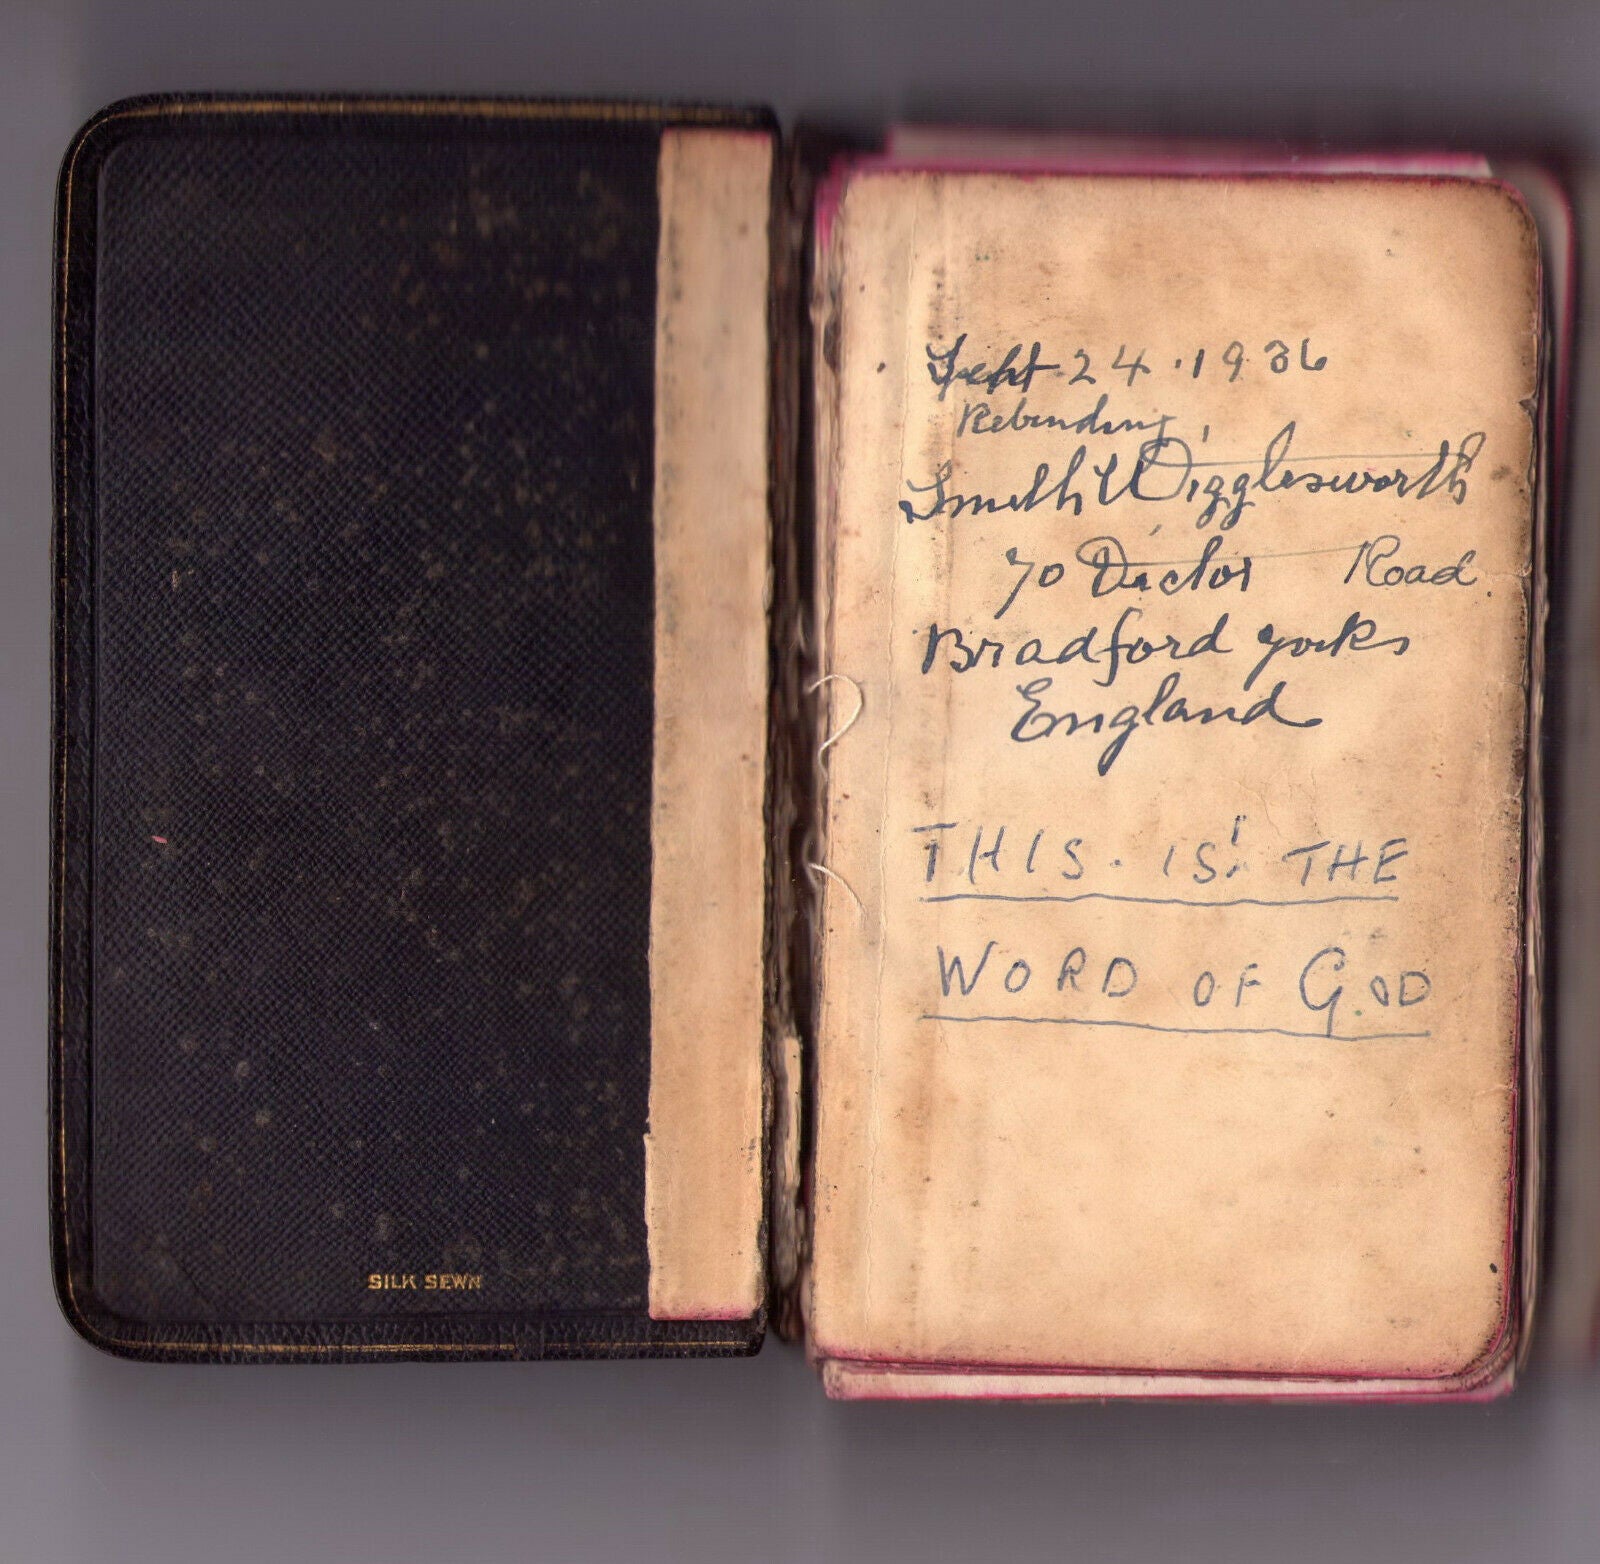 SILK SEWN
Sept. 24. 1936
Rebinding,
Smith Wigglesworth
70 Victor Road.
Bradford Yorks
England
THIS. IS. THE
WORD OF GOD